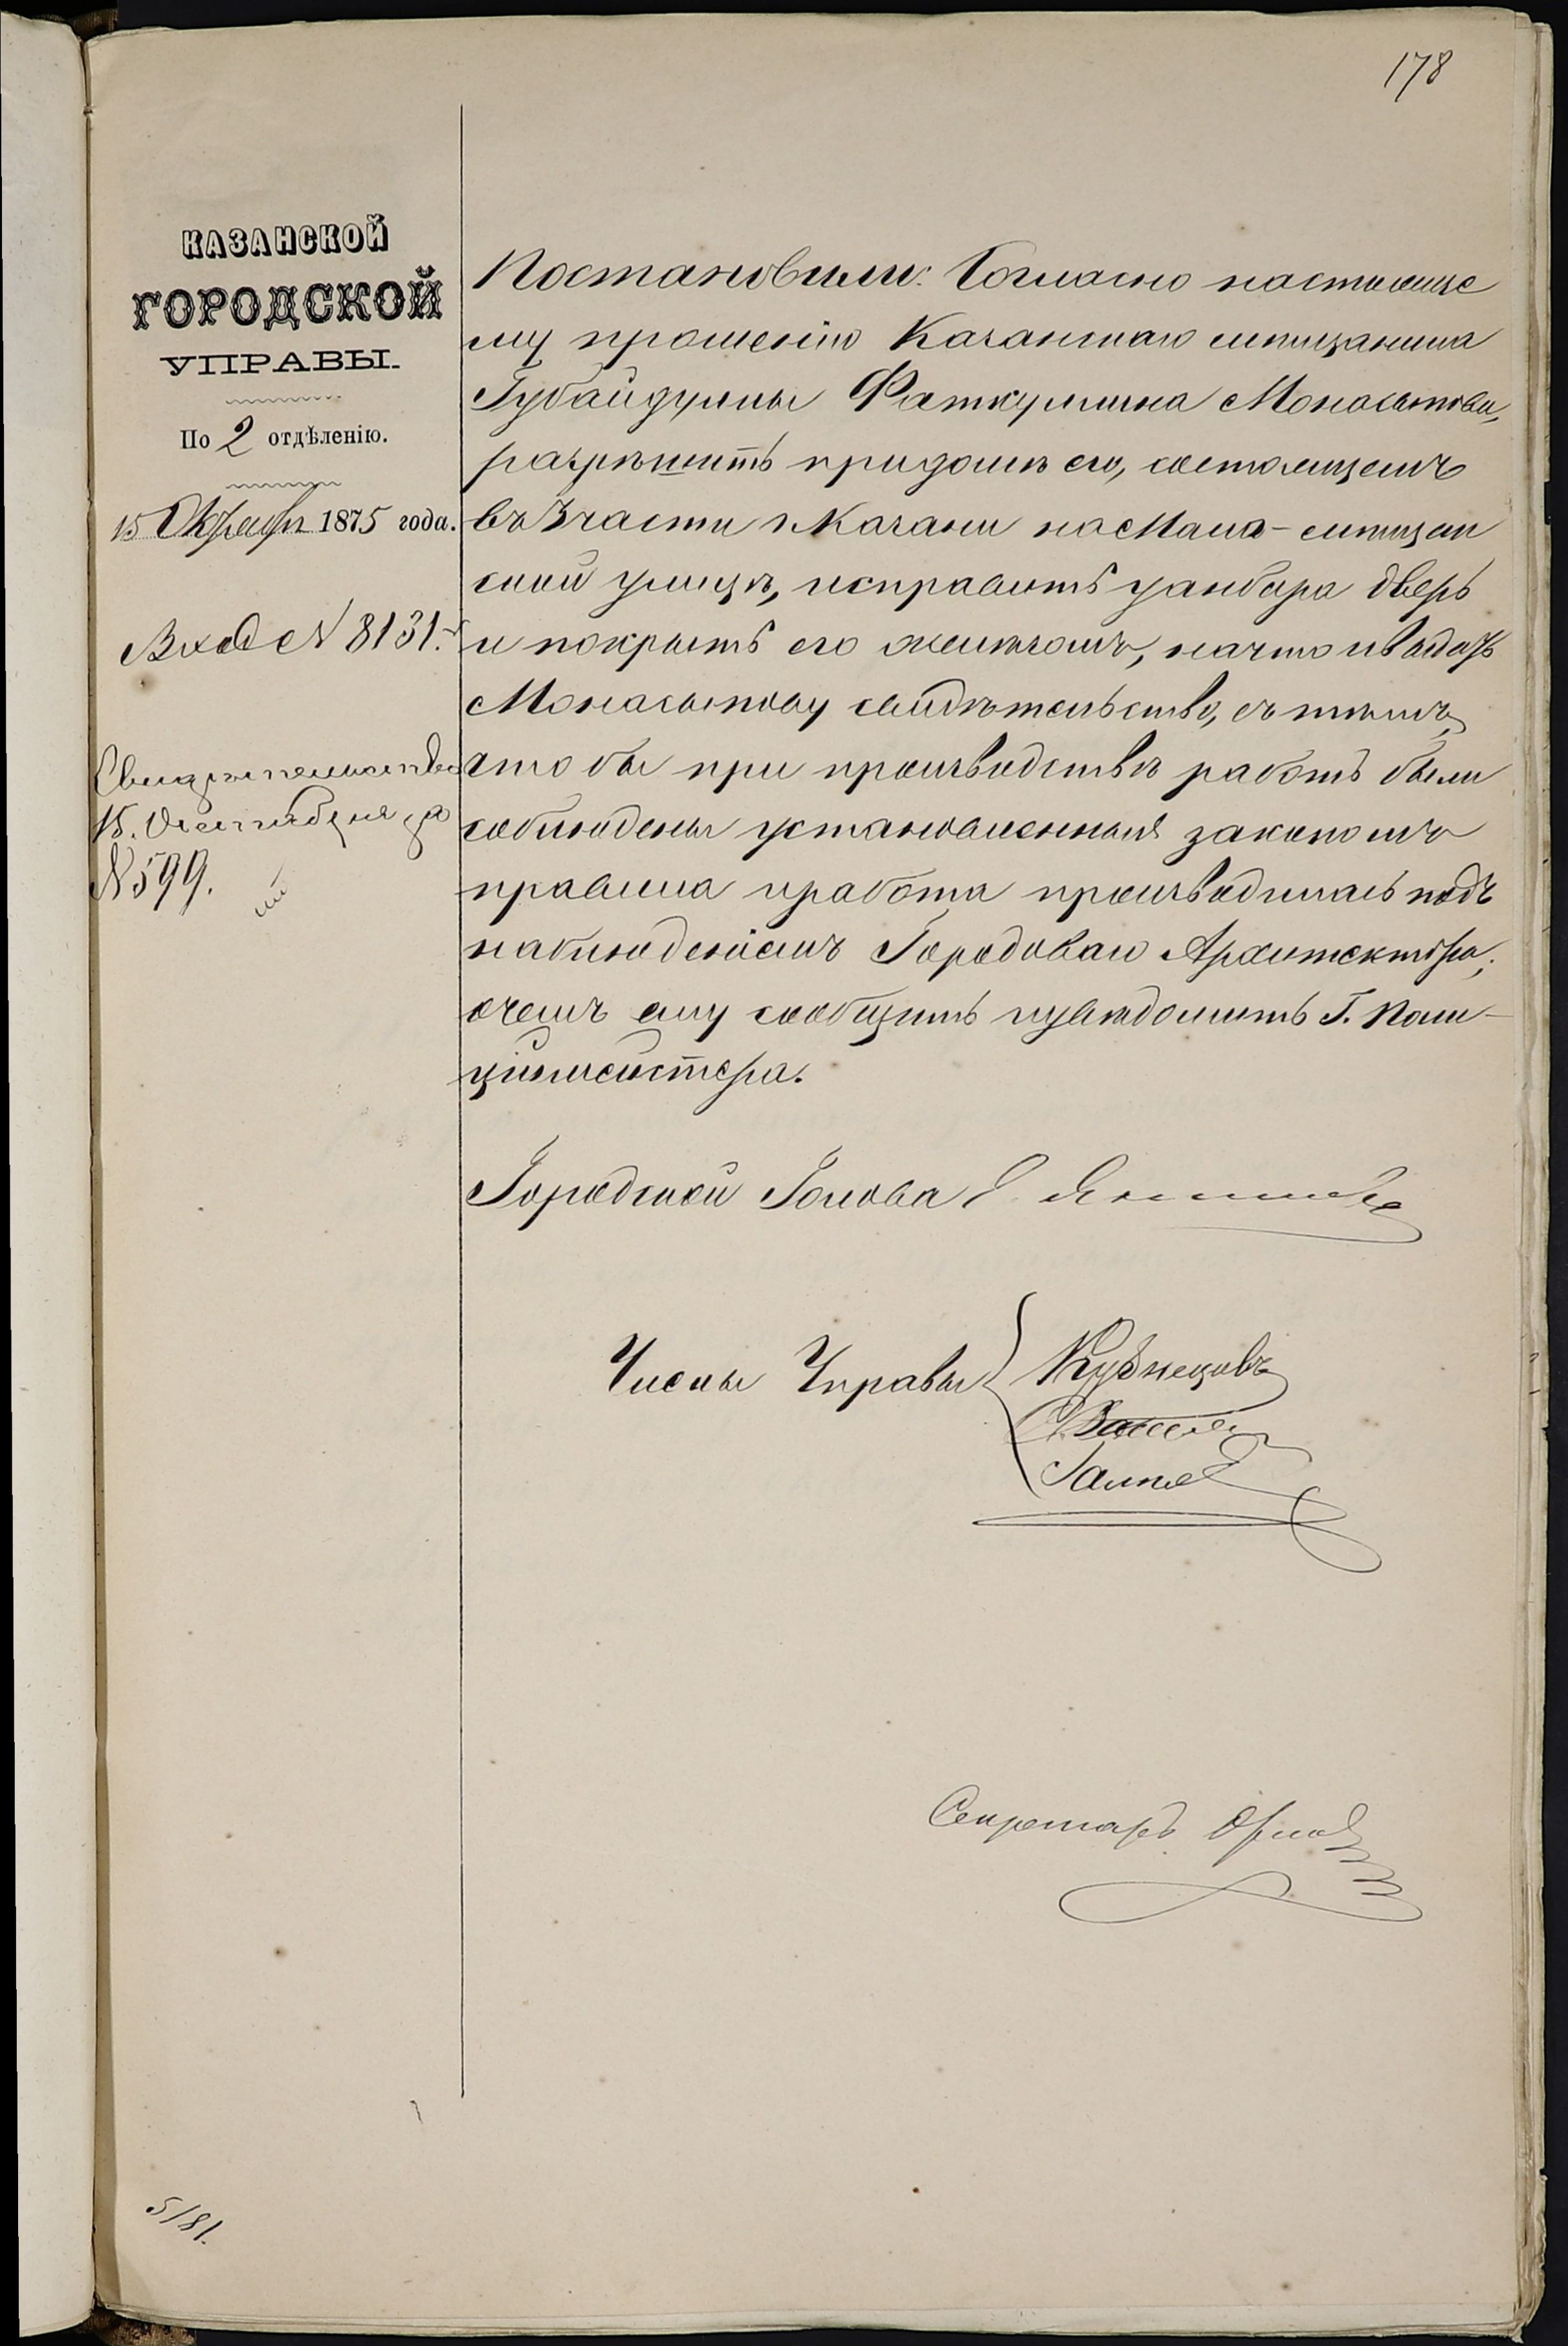 178
КАЗАНСКОЙ
ГОРОДСКОЙ
УПРАВЫ.
По 2 отдѣленію.
15 Октября 1875 года.
Вход № 8131.
Свидѣтельство
15. Октября за
№ 599.
Постановили: Согласно настояще
му прошенію Казанскаго мѣщанина
Губайдуллы Фаткуллина Монасыпова,
разрѣшить при домѣ его, состоящемъ
въ 3 части г. Казани на Мало-мѣщан
ской улицѣ, исправить у анбара дверь
и покрыть его желѣзомъ, на что и выдать
Монасыпову свидѣтельство, съ тѣмъ,
что бы при производствѣ работъ были
соблюдены установленныя закономъ
правила и работа производилась подъ
наблюденіемъ Городоваго Архитектора;
о чемъ ему сообщить и увѣдомить Г. Поли-
ціймейстера.
Городской Голова Е. Янишевскій
Члены Управы Кузнецовъ
Секретарь Орлов
5/81.